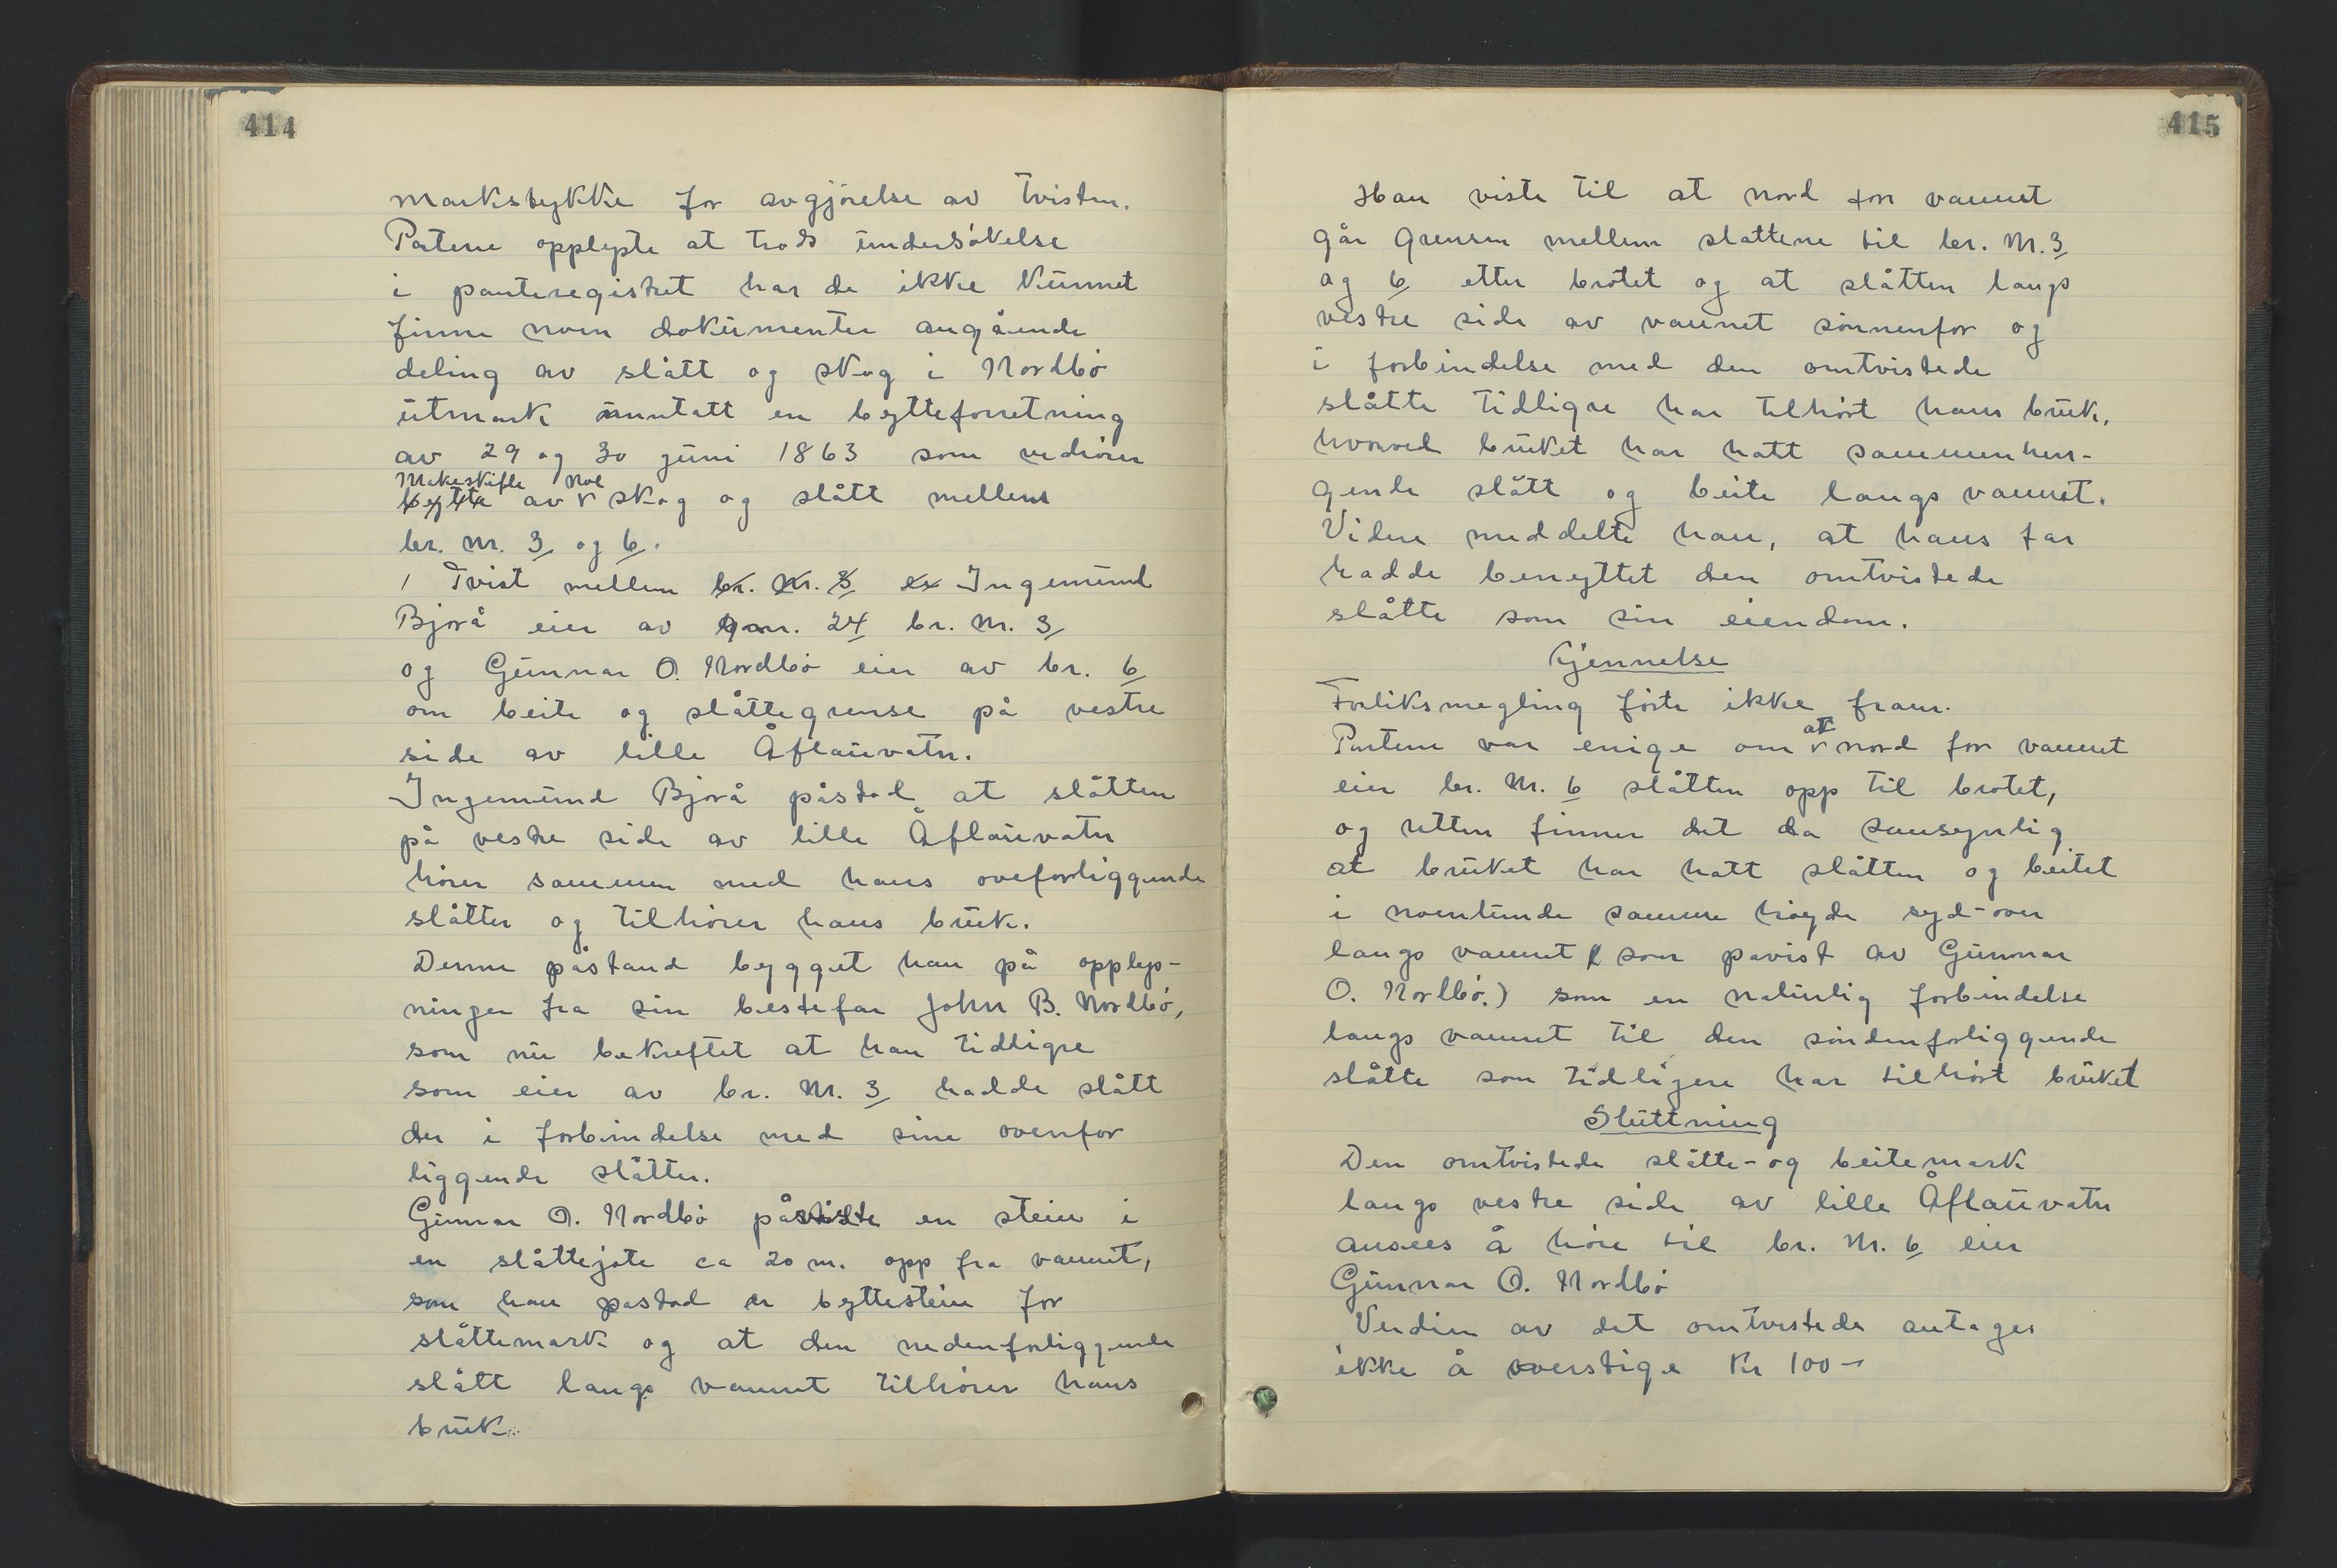 414
markstykke for avgjørelse av tvisten.
Partene opplyste at trods undersøkelse
i panteregistret har de ikke kunnet
finne noen dokumenter angående
deling av slått og skog i Nordbø
utmark unntatt en bytteforretning
av 29 og 30 juni 1863 som vedrører
Makeskifte noe
bytte av v skog og slått mellem
br. nr. 3 og 6.
1 Tvist mellem br. nr. 3 Ingemund
Bjorå eier av gnr. 24 br. nr. 3
og Gunnar O. Nordbø eier av br. 6
om beite og slåttegrense på vestre
side av lille Åflauvatn.
Ingemund Bjorå påstod at slåtten
på vestre side av lille Åflauvatn
hører sammen med hans oveforliggende
slåtter og tilhører hans bruk.
Denne påstand bygget han på opplys-
ninger fra sin bestefar John B. Nordbø,
som nu bekreftet at han tidligre
som eier av br. nr. 3 hadde slått
der i forbindelse med sine ovenfor
liggende slåtter.
Gunnar O. Nordbø påviste en stein i
en slåttejote ca 20 m. opp fra vannet,
som han pastod er byttestein for
slåttemark og at den nedenforliggende
slått langs vannet tilhører hans
bruk.
415
Han viste til at nord for vannet
går grensen mellem slattene til br. nr. 3
og 6 etter brotet og at slåtten langs
vestre side av vannet sønnenfor og
i forbindelse med den omtvistede
slåtte tidligre har tilhørt hans bruk,
hvorved bruket har hatt sammenhen-
gende slått og beite langs vannet.
Videre meddelte han, at hans far
hadde benyttet den omtvistede
slåtte som sin eiendom.
Kjennelse
Forliksmegling førte ikke fram.
at
Partene var enige om v nord for vannet
eier br. nr. 6 slåtten opp til brotet,
og retten finner det da sansynlig
at bruket har hatt slåtten og beitet
i noenlunde samme høyde syd-over
langs vannet ( som pavist av Gunnar
O. Nordbø.) som en naturlig forbindelse
langs vannet til den søndenforliggende
slåtte som tidligere har tilhørt bruket
Sluttning
Den omtvistede slåtte- og beitemark
langs vestre side av lille Åflauvatn
ansees å høre til br. nr. 6 eier
Gunnar O. Nordbø
Verdien av det omtvistede antages
ikke å overstige kr 100-